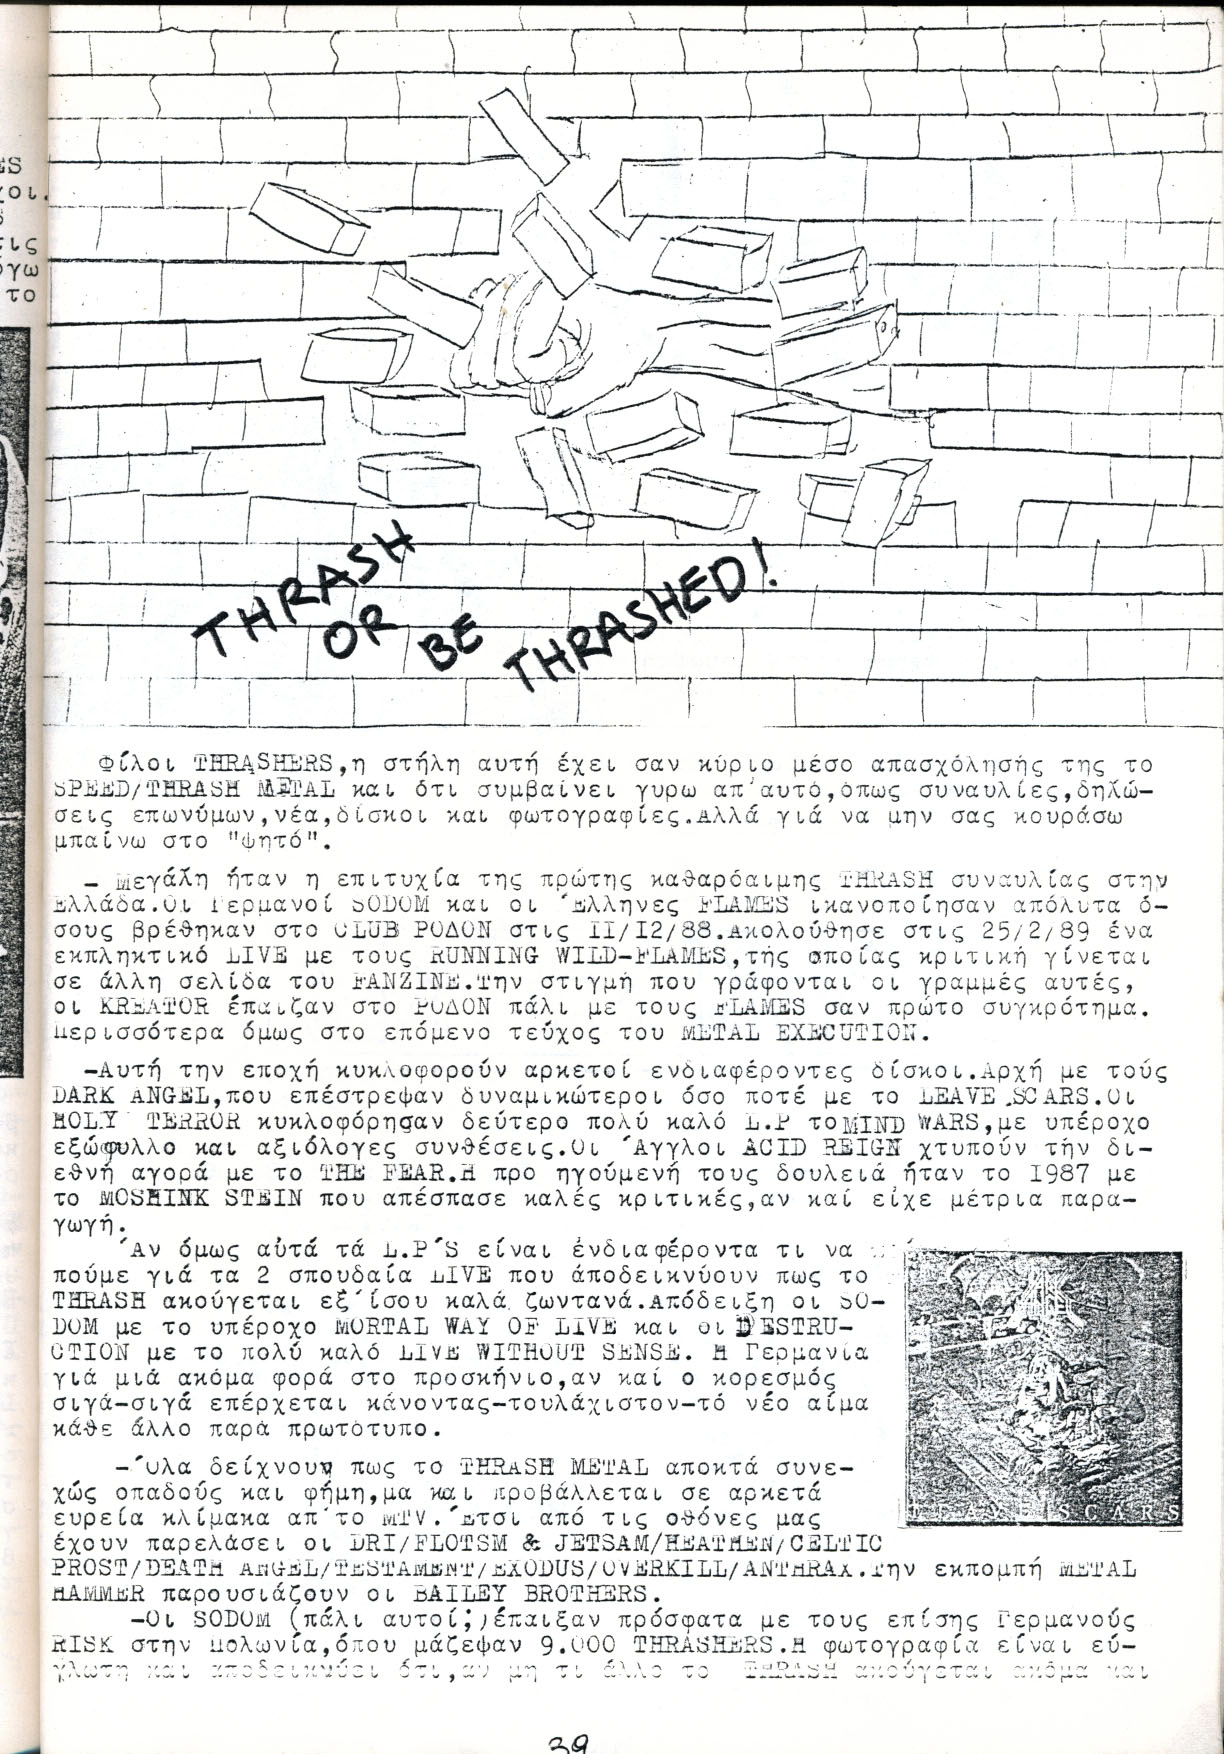 ES
χοι.
S
εις
όγω
το
THRASH
OR
BE
THRASHED!
Φίλοι THRASHERS,η στήλη αυτή έχει σαν κύριο μέσο απασχόλησής της το
SPEED/THRASH METAL και ότι συμβαίνει γυρω απ'αυτό,όπως συναυλίες,δηλώ-
σεις επωνύμων,νέα,δίσκοι και φωτογραφίες.Αλλά γιά να μην σας κουράσω
μπαίνω στο "ψητό".
- Μεγάλη ήταν η επιτυχία της πρώτης καθαρόαιμης THRASH συναυλίας στην
Ελλάδα.Οι Γερμανοί SODOM και οι Έλληνες FLAMES ικανοποίησαν απόλυτα ό-
σους βρέθηκαν στο CLUB ΡΟΔΟΝ στις II/I2/88.Ακολούθησε στις 25/2/89 ένα
εκπληκτικό LIVE με τους RUNNING WILD-FLAMES,τής οποίας κριτική γίνεται
σε άλλη σελίδα του FANZINE.Την στιγμή που γράφονται οι γραμμές αυτές,
οι KREATOR έπαιζαν στο ΡΟΔΟΝ πάλι με τους FLAMES σαν πρώτο συγκρότημα.
Περισσότερα όμως στο επόμενο τεύχος του METAL EXECUTION.
-Αυτή την εποχή κυκλοφορούν αρκετοί ενδιαφέροντες δίσκοι.Αρχή με τούς
DARK ANGEL,που επέστρεψαν δυναμικώτεροι όσο ποτέ με το LEAVE SCARS.Οι
HOLY TERROR κυκλοφόρησαν δεύτερο πολύ καλό L.P το MIND WARS,με υπέροχο
εξώφυλλο και αξιόλογες συνθέσεις.Οι Άγγλοι ACID REIGN χτυπούν τήν δι-
εθνή αγορά με το THE FEAR.Η προ ηγούμενή τους δουλειά ήταν το I987 με
το MOSHINK STEIN που απέσπασε καλές κριτικές,αν καί είχε μέτρια παρα-
γωγή.
Άν όμως αύτά τά L.P'S είναι ένδιαφέροντα τι να
πούμε γιά τα 2 σπουδαία LIVE που άποδεικνύουν πως το
THRASH ακούγεται εξ'ίσου καλά ζωντανά.Απόδειξη οι SO-
DOM με το υπέροχο MORTAL WAY OF LIVE και οι DESTRU-
CTION με το πολύ καλό LIVE WITHOUT SENSE. Η Γερμανία
γιά μιά ακόμα φορά στο προσκήνιο,αν καί ο κορεσμός
σιγά-σιγά επέρχεται κάνοντας-τουλάχιστον-τό νέο αίμα
κάθε άλλο παρά πρωτότυπο.
LEAVE SCARS
-Όλα δείχνουν πως το THRASH METAL αποκτά συνε-
χώς οπαδούς και φήμη,μα και προβάλλεται σε αρκετά
ευρεία κλίμακα απ'το MTV.Έτσι από τις οθόνες μας
έχουν παρελάσει οι DRI/FLOTSM & JETSAM/HEATHEN/CELTIC
PROST/DEATH ANGEL/TESTAMENT/EXODUS/OVERKILL/ANTHRAX.Την εκπομπή METAL
HAMMER παρουσιάζουν οι BAILEY BROTHERS.
-Οι SODOM (πάλι αυτοί;)έπαιξαν πρόσφατα με τους επίσης Γερμανούς
RISK στην Πολωνία,όπου μάζεψαν 9.000 THRASHERS.Η φωτογραφία είναι εύ-
γλωτη και αποδεικνύει ότι,αν μη τι άλλο το THRASH ακούγεται ακόμα και
39